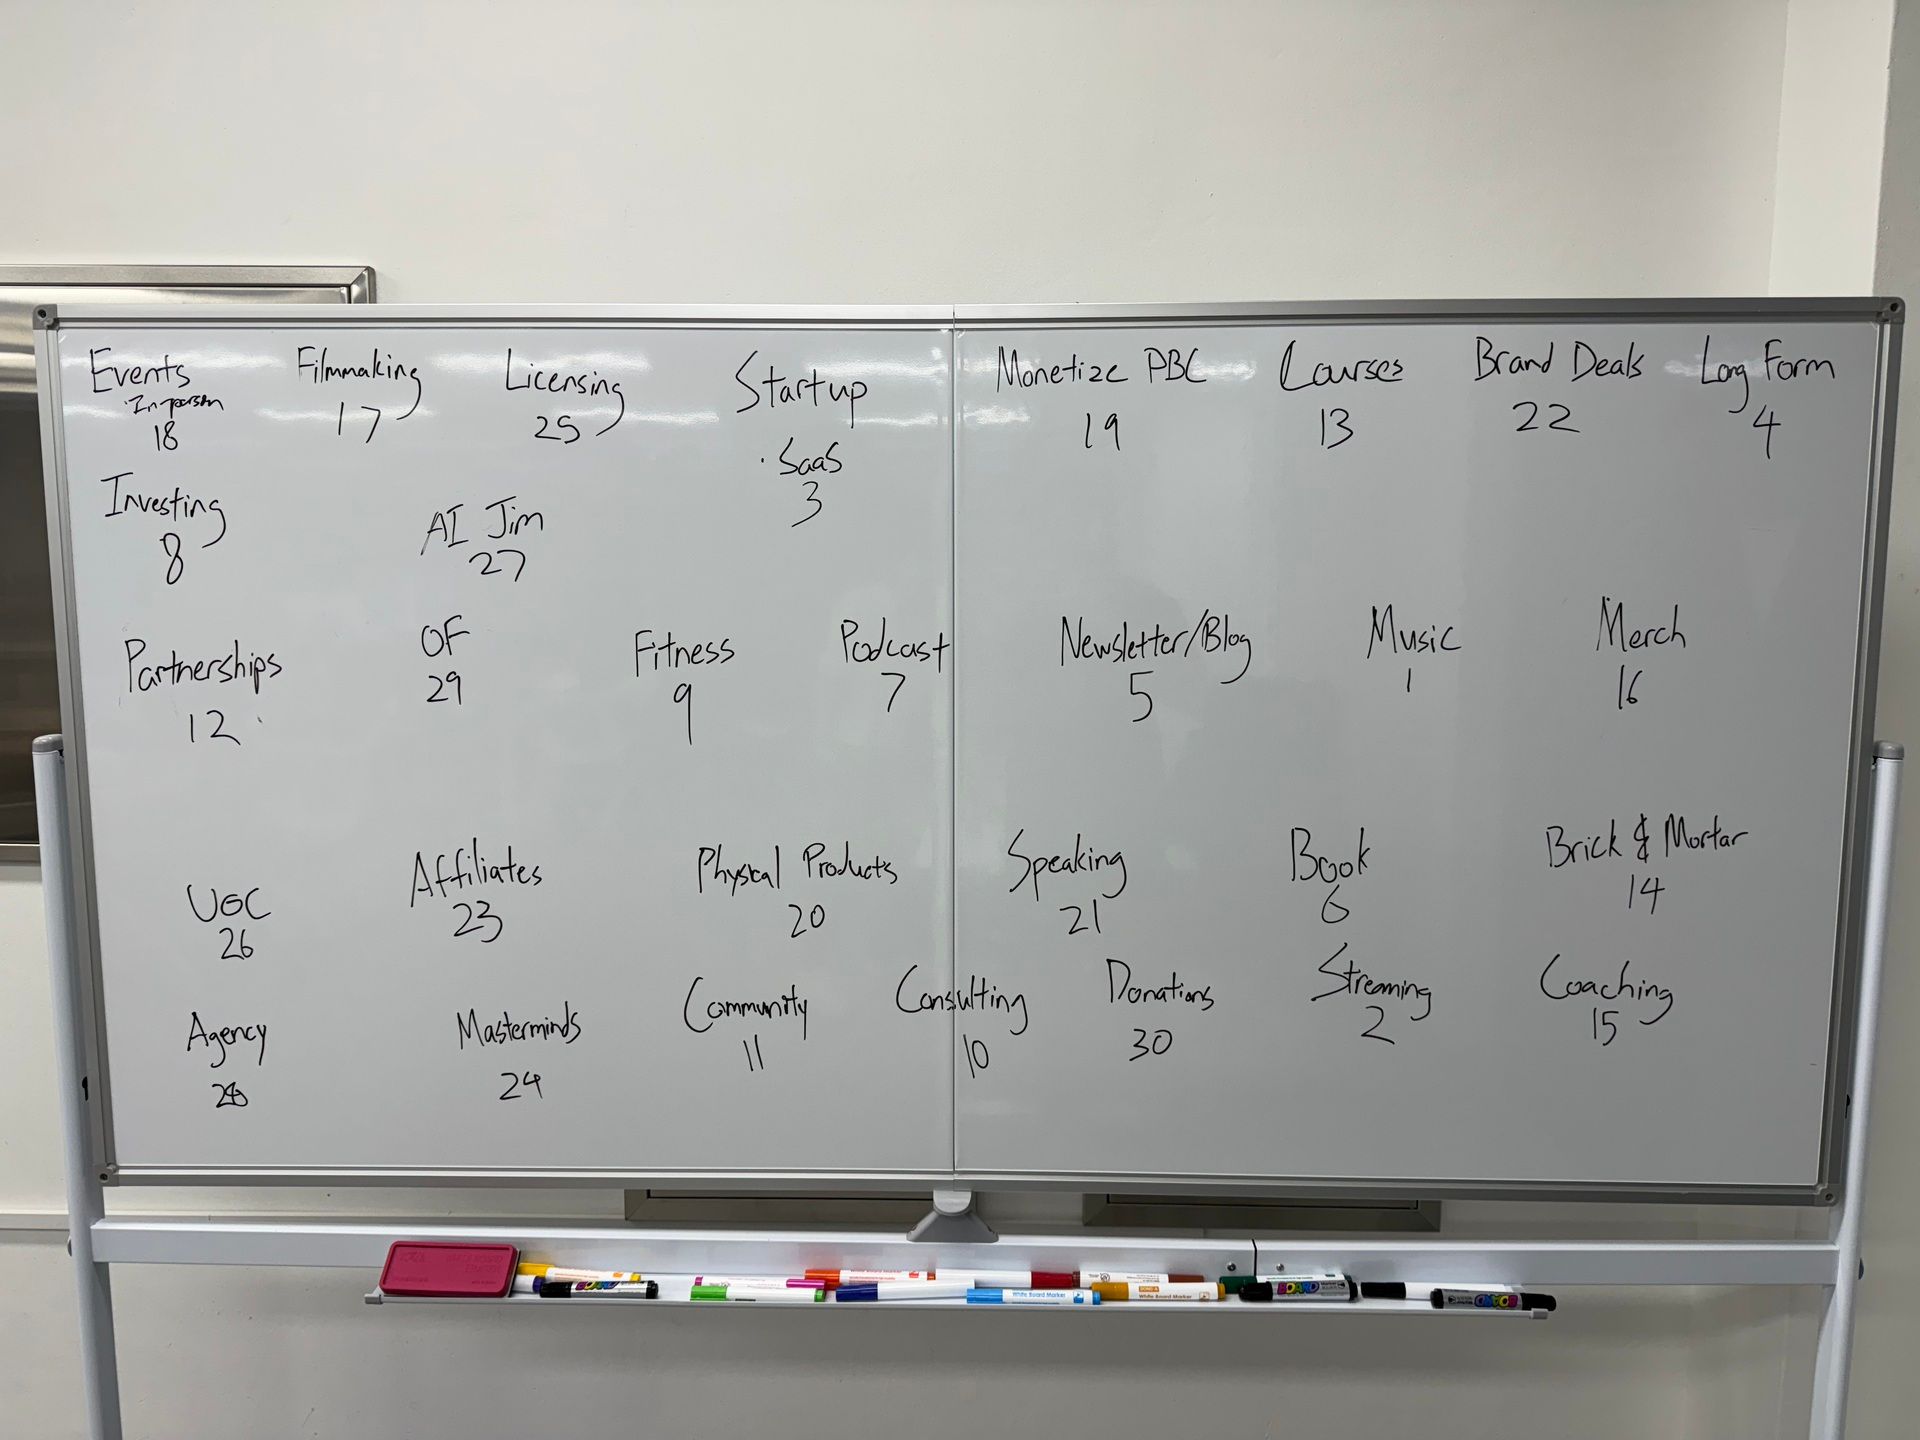 Events
·In-person
18
Filmmaking
17
Licensing
25
Startup
·SaaS
3
Monetize PBC
19
Courses
13
Brand Deals
22
Long Form
4
Investing
8
AI Jim
27
Partnerships
12
OF
29
Fitness
9
Podcast
7
Newsletter/Blog
5
Music
1
Merch
16
UGC
26
Affiliates
23
Physical Products
20
Speaking
21
Book
6
Brick & Mortar
14
Agency
28
Masterminds
24
Community
11
Consulting
10
Donations
30
Streaming
2
Coaching
15
White Board Marker
White Board Marker
BOARD
BOARD
BOARD